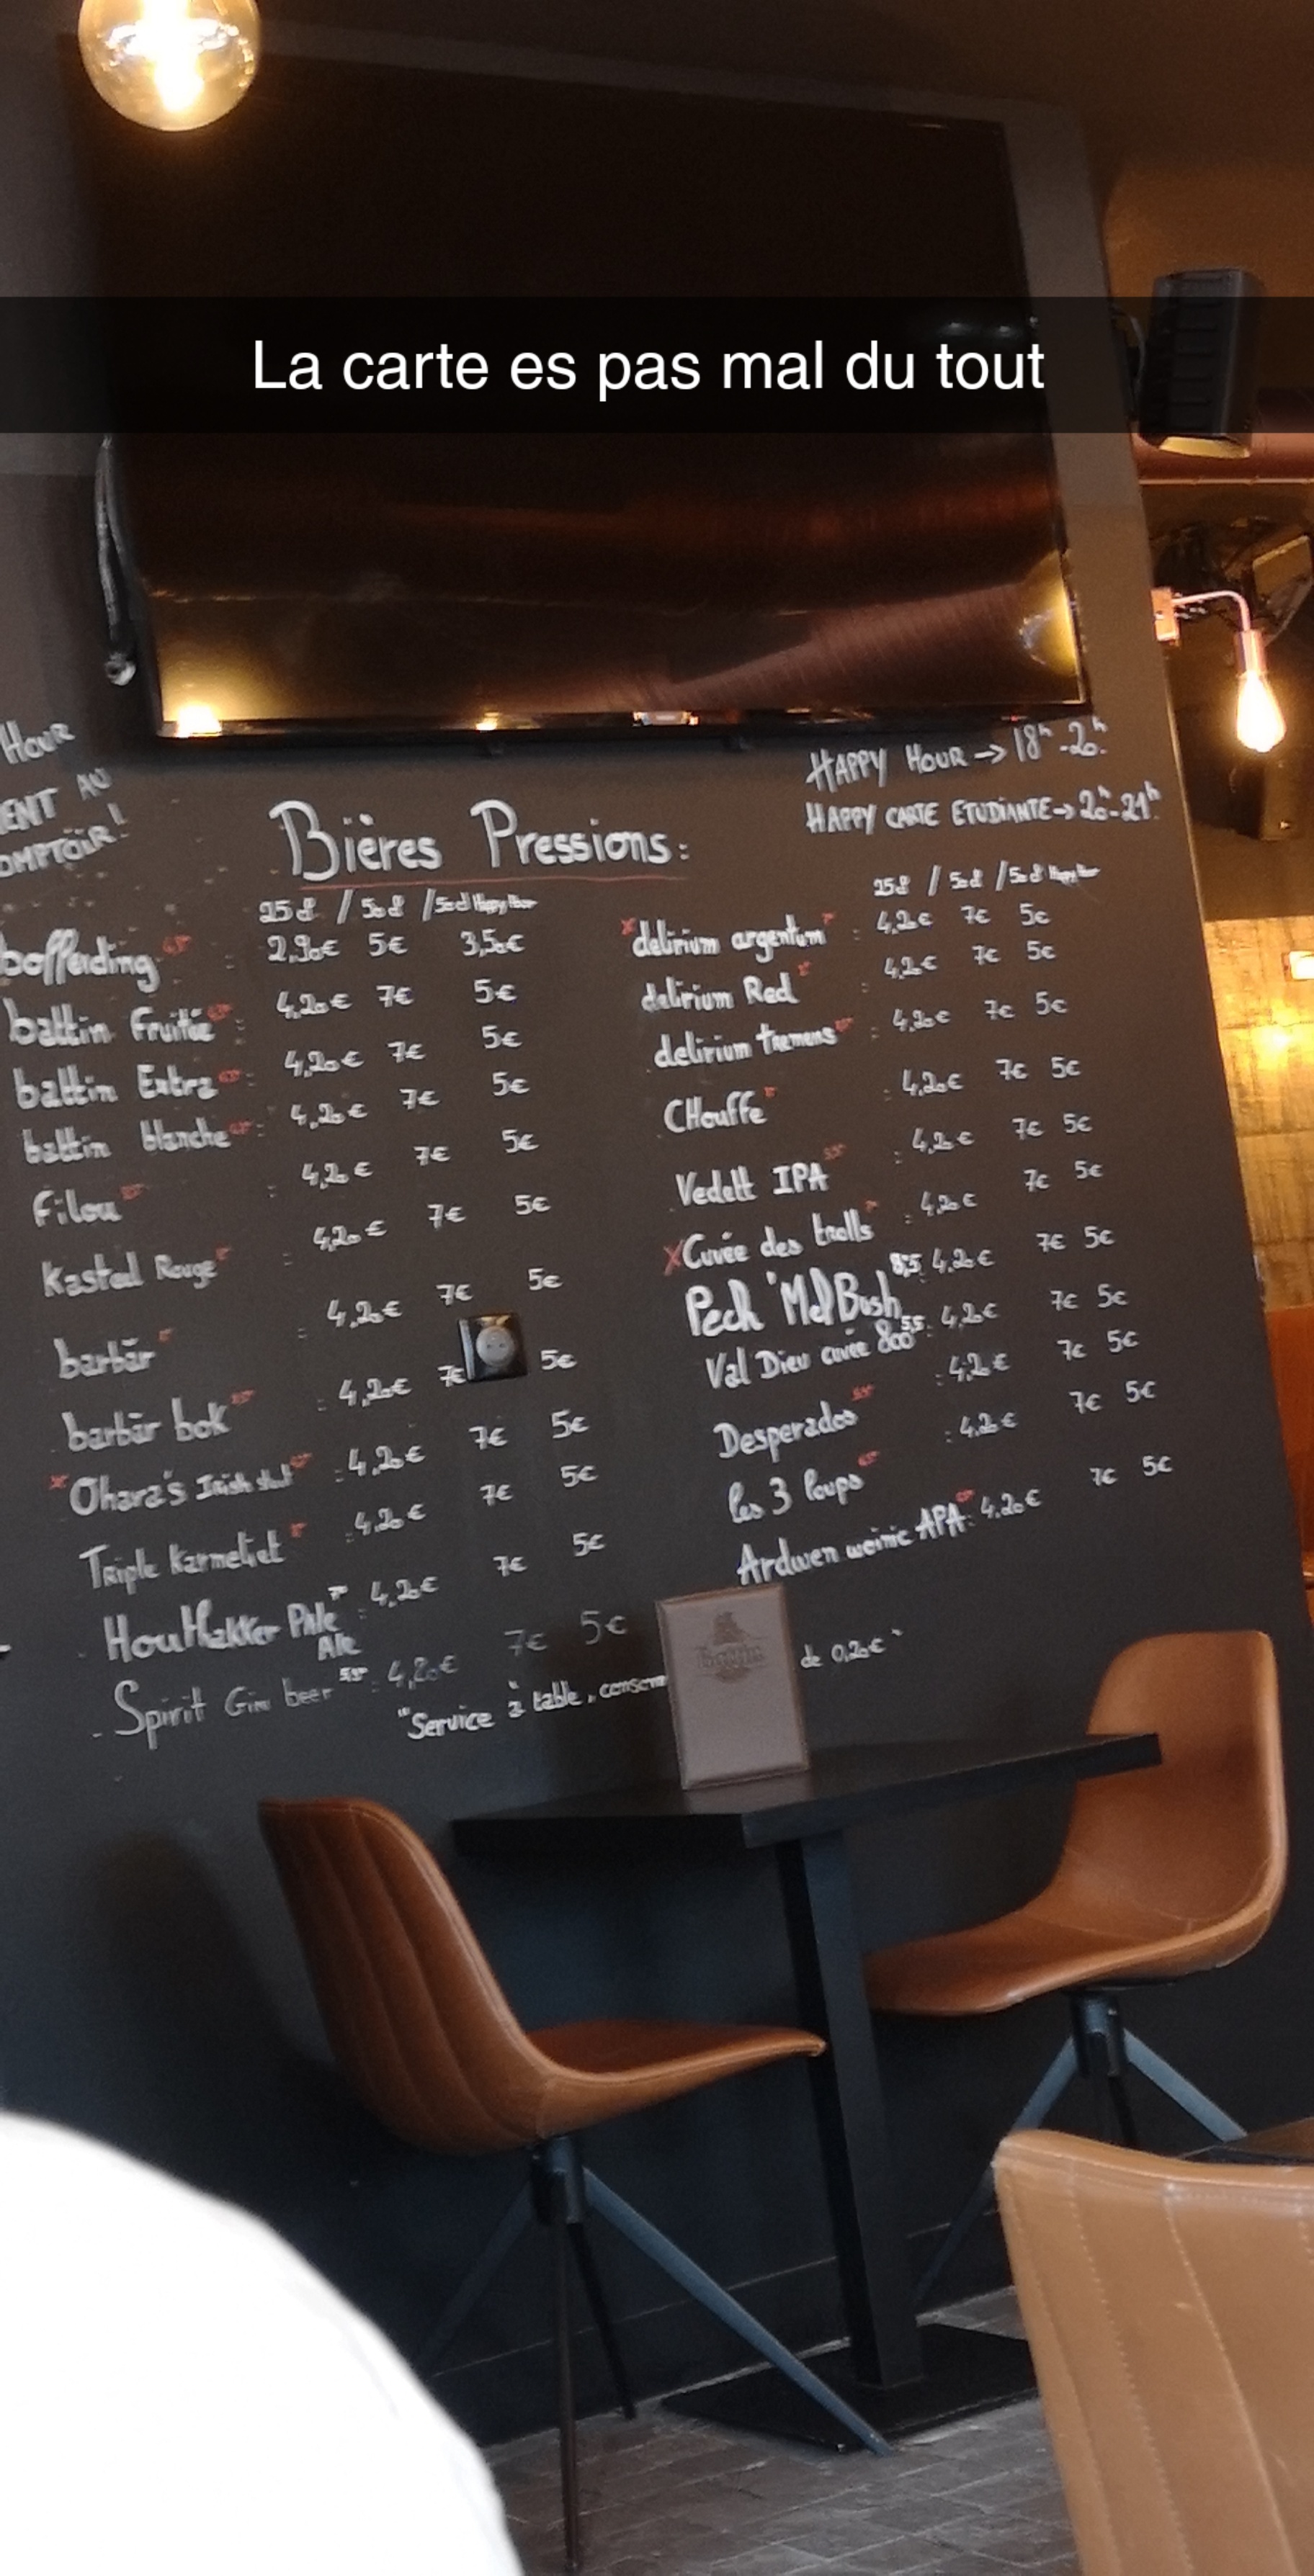 La carte es pas mal du tout
Hour
ENT AU
OMPTOIR!
HAPPY HOUR → 18h-20h
HAPPY CARTE ETUDIANTE → 20h-21h
Bières Pressions:
25cl / 50cl / 50cl Happy Hour
boffeiding : 2,90€ 5€ 3,50€
battin Fruitée : 4,20€ 7€ 5€
battin Extra : 4,20€ 7€ 5€
battin blanche : 4,20€ 7€ 5€
Filou : 4,20€ 7€ 5€
Kasteel Rouge : 4,20€ 7€ 5€
barbär : 4,20€ 7€ 5€
barbär bok : 4,20€ 7€ 5€
x Ohara's Irish stout : 4,20€ 7€ 5€
Triple Karmeliet : 4,20€ 7€ 5€
Houthakker Pale Ale : 4,20€ 7€ 5€
- Spirit Gin beer : 4,20€ 7€ 5€
25cl / 50cl / 50cl Happy Hour
x delirium argentum : 4,20€ 7€ 5€
delirium Red : 4,20€ 7€ 5€
delirium tremens : 4,20€ 7€ 5€
CHouffe : 4,20€ 7€ 5€
Vedett IPA : 4,20€ 7€ 5€
X Cuvée des trolls : 4,20€ 7€ 5€
Pech 'Mel Bush 8,5 : 4,20€ 7€ 5€
Val Dieu cuvée 800 5,5 : 4,20€ 7€ 5€
Desperados : 4,20€ 7€ 5€
les 3 loups : 4,20€ 7€ 5€
Ardwen weinic APA : 4,20€ 7€ 5€
"Service à table, consom de 0,20€"